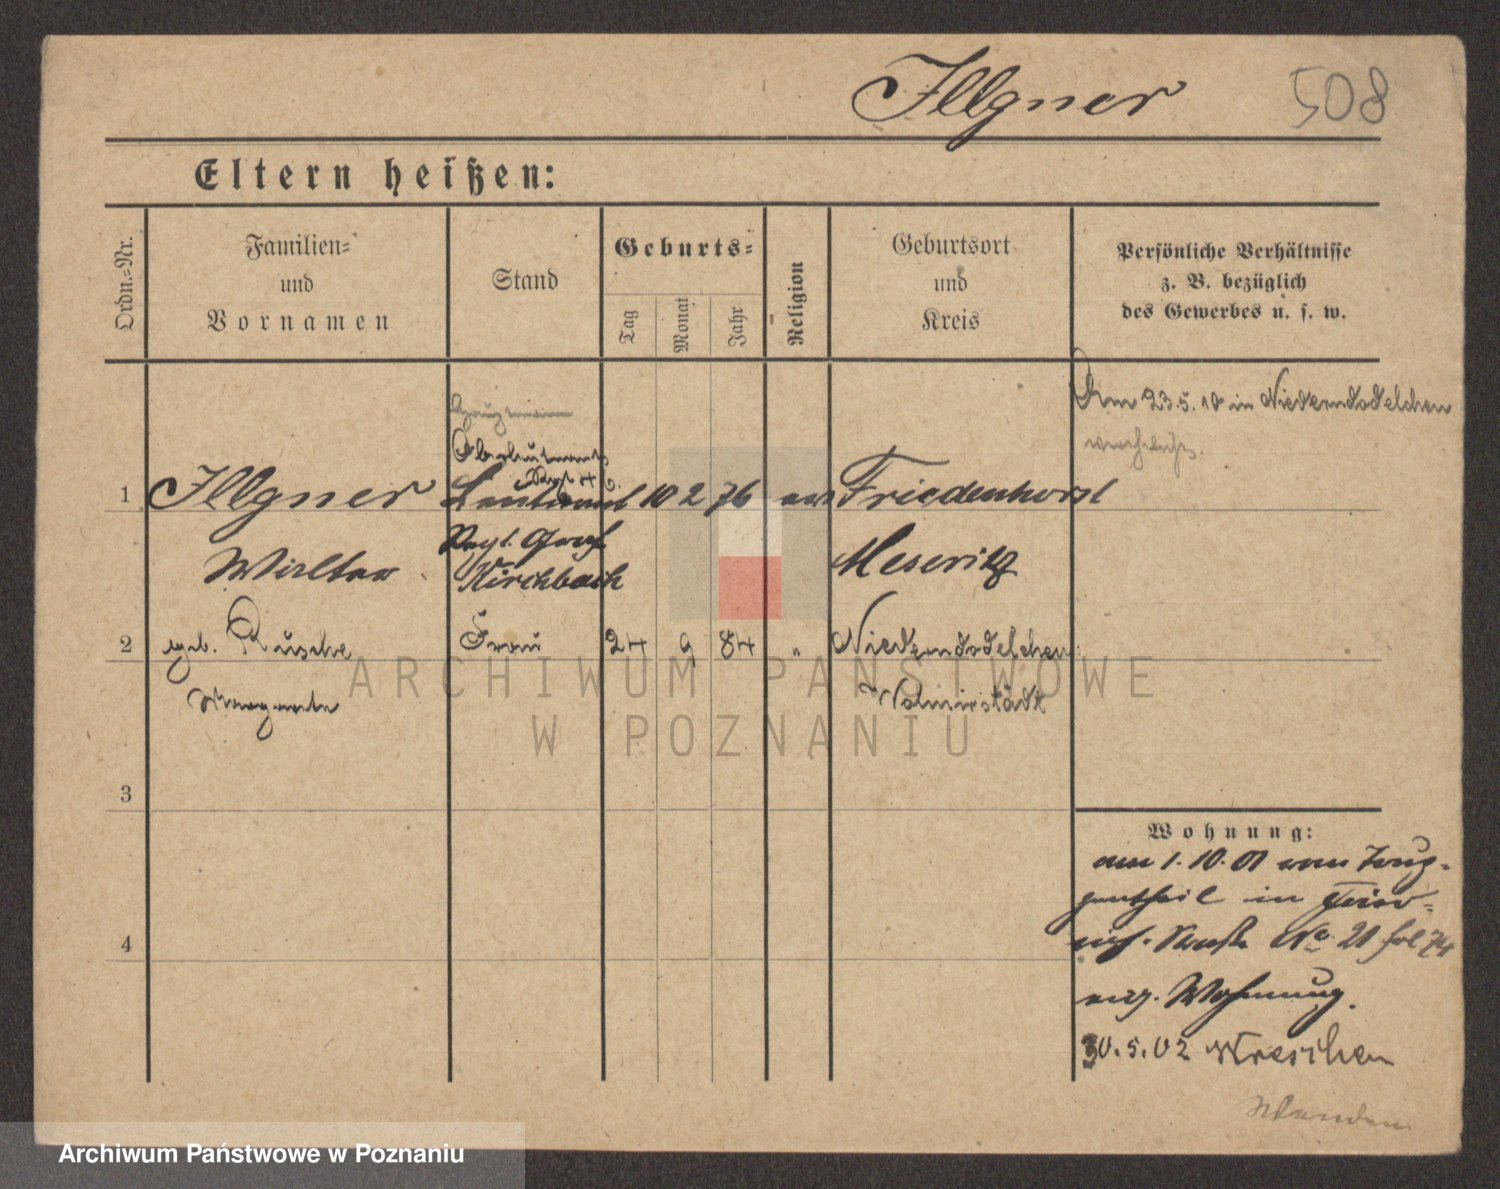 Illgner 508
Eltern heißen:
Ordn.-Nr.
Familien-
und
Vornamen
Stand
Geburts-
Tag
Monat
Jahr
Religion
Geburtsort
und
Kreis
Persönliche Verhältnisse
z. B. bezüglich
des Gewerbes u. s. w.
Am 23.5.10 in Niederndodeleben
Hauptmann
Oberleutnant
1 Illgner Leutnant 10 2 76 ev Friedenhorst
Walter Regt. Graf Meseritz
Kirchbach
2 geb. Rusche Frau 24 9 84 " Niederndodeleben
Margarete Wolmirstädt
3
4
Wohnung:
am 1.10.01 vom
in
No 21 fol 74
Wohnung.
30.5.02 Wreschen
ARCHIWUM PAŃSTWOWE
W POZNANIU
Archiwum Państwowe w Poznaniu